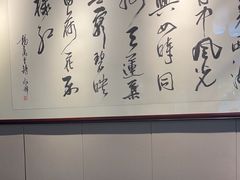 中風光
與四時同
天蓮葉
窮碧映
日荷花別
樣紅
楊萬里詩